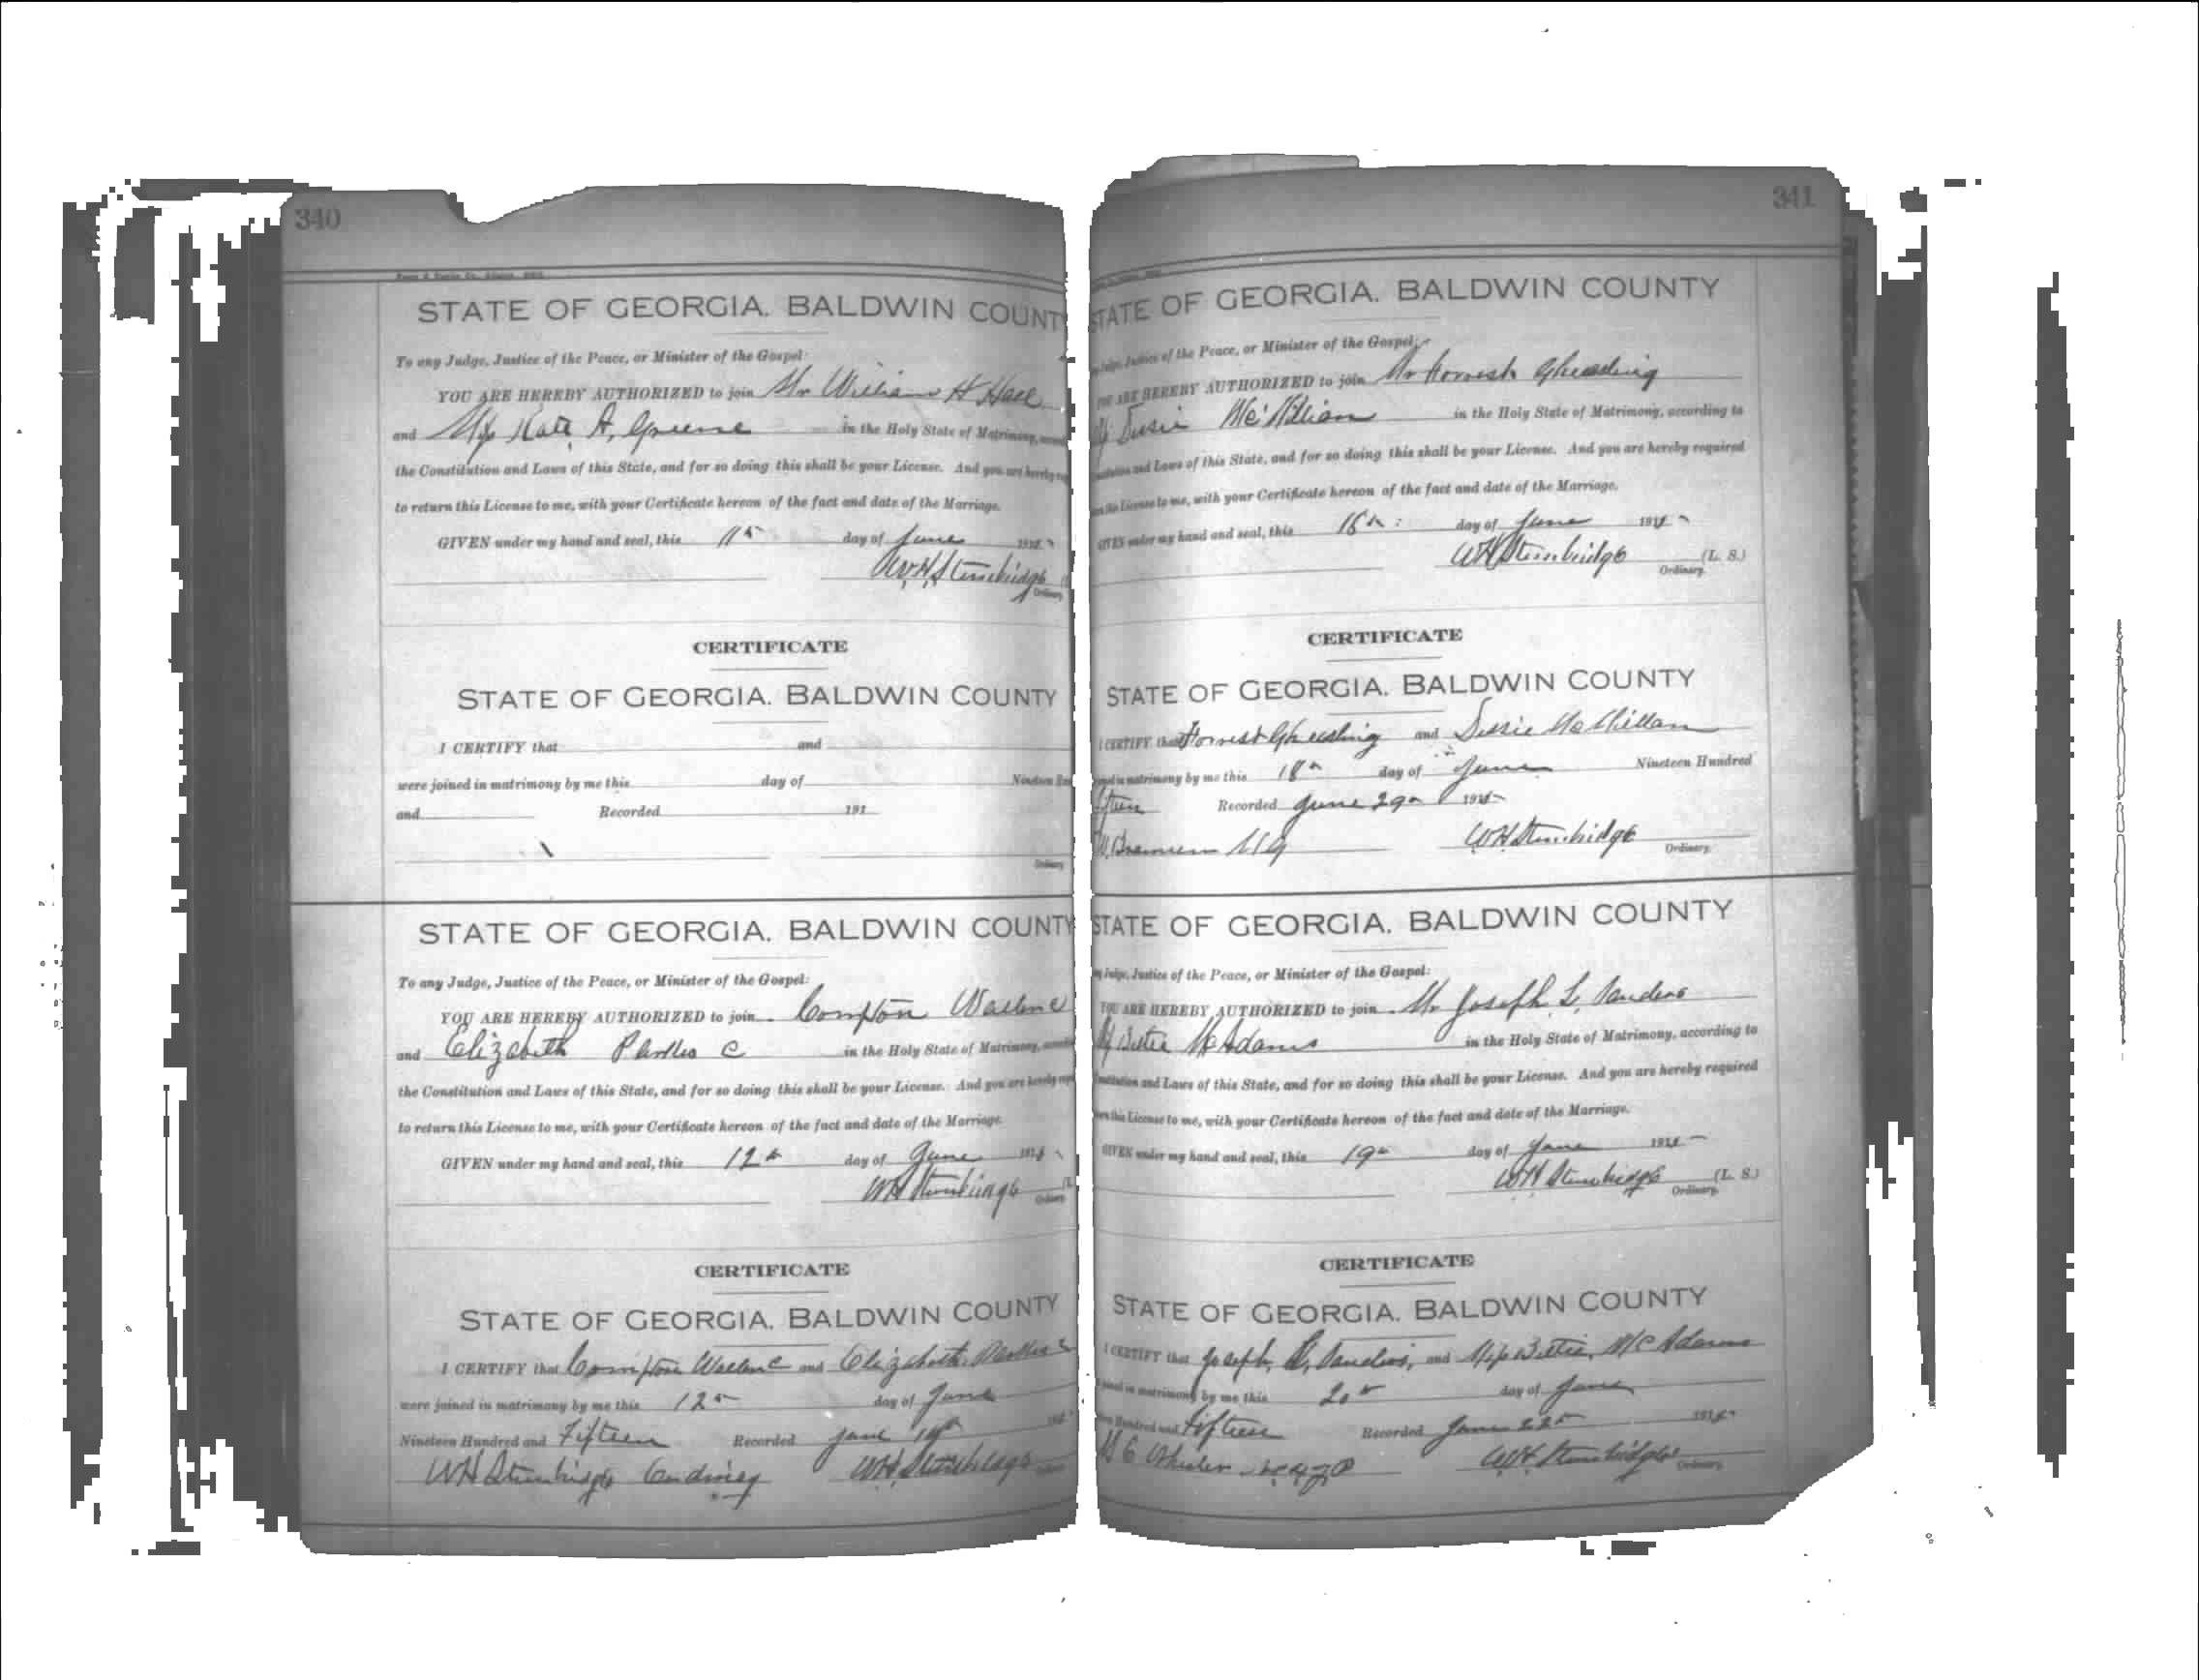 340
STATE OF GEORGIA. BALDWIN COUNT
To any Judge, Justice of the Peace, or Minister of the Gospel:
YOU ARE HEREBY AUTHORIZED to join Mr William H Hall
and Miss Kate A. Greene in the Holy State of Matrimony,
the Constitution and Laws of this State, and for so doing this shall be your License. And you are hereby
to return this License to me, with your Certificate hereon of the fact and date of the Marriage.
GIVEN under my hand and seal, this 11th day of June 1915
W.H. Stembridge
Ordinary
CERTIFICATE
STATE OF GEORGIA. BALDWIN COUNTY
I CERTIFY that and
were joined in matrimony by me this day of Nineteen
and Recorded 191
Ordinary
STATE OF GEORGIA. BALDWIN COUNTY
To any Judge, Justice of the Peace, or Minister of the Gospel:
YOU ARE HEREBY AUTHORIZED to join Compton Wallace
and Elizabeth in the Holy State of Matrimony,
the Constitution and Laws of this State, and for so doing this shall be your License. And you are hereby
to return this License to me, with your Certificate hereon of the fact and date of the Marriage.
GIVEN under my hand and seal, this 12th day of June 1915
WH Stembridge
Ordinary
CERTIFICATE
STATE OF GEORGIA. BALDWIN COUNTY
I CERTIFY that Compton Wallace and Elizabeth
were joined in matrimony by me this 12th day of June
Nineteen Hundred and Fifteen Recorded June 191
WH Stembridge Ordinary WH Stembridge
341
STATE OF GEORGIA. BALDWIN COUNTY
Judge, Justice of the Peace, or Minister of the Gospel:
YOU ARE HEREBY AUTHORIZED to join Mr Forrest Gheesling
Susie McMillian in the Holy State of Matrimony, according to
and Laws of this State, and for so doing this shall be your License. And you are hereby required
this License to me, with your Certificate hereon of the fact and date of the Marriage.
GIVEN under my hand and seal, this day of June 1915
WH Stembridge (L. S.)
Ordinary.
CERTIFICATE
STATE OF GEORGIA. BALDWIN COUNTY
I CERTIFY that Forrest Gheesling and Susie McMillan
in matrimony by me this 18th day of June Nineteen Hundred
Recorded June 29th 1915
MG WH Stembridge
Ordinary.
STATE OF GEORGIA. BALDWIN COUNTY
Judge, Justice of the Peace, or Minister of the Gospel:
YOU ARE HEREBY AUTHORIZED to join Mr Joseph L. Sanders
McAdams in the Holy State of Matrimony, according to
and Laws of this State, and for so doing this shall be your License. And you are hereby required
this License to me, with your Certificate hereon of the fact and date of the Marriage.
GIVEN under my hand and seal, this 19th day of June 1915
WH Stembridge (L. S.)
Ordinary.
CERTIFICATE
STATE OF GEORGIA. BALDWIN COUNTY
I CERTIFY that Joseph L. Sanders, and Miss McAdams
in matrimony by me this 20th day of June
Hundred and Fifteen Recorded June 22nd 1915
WH Stembridge
Ordinary.